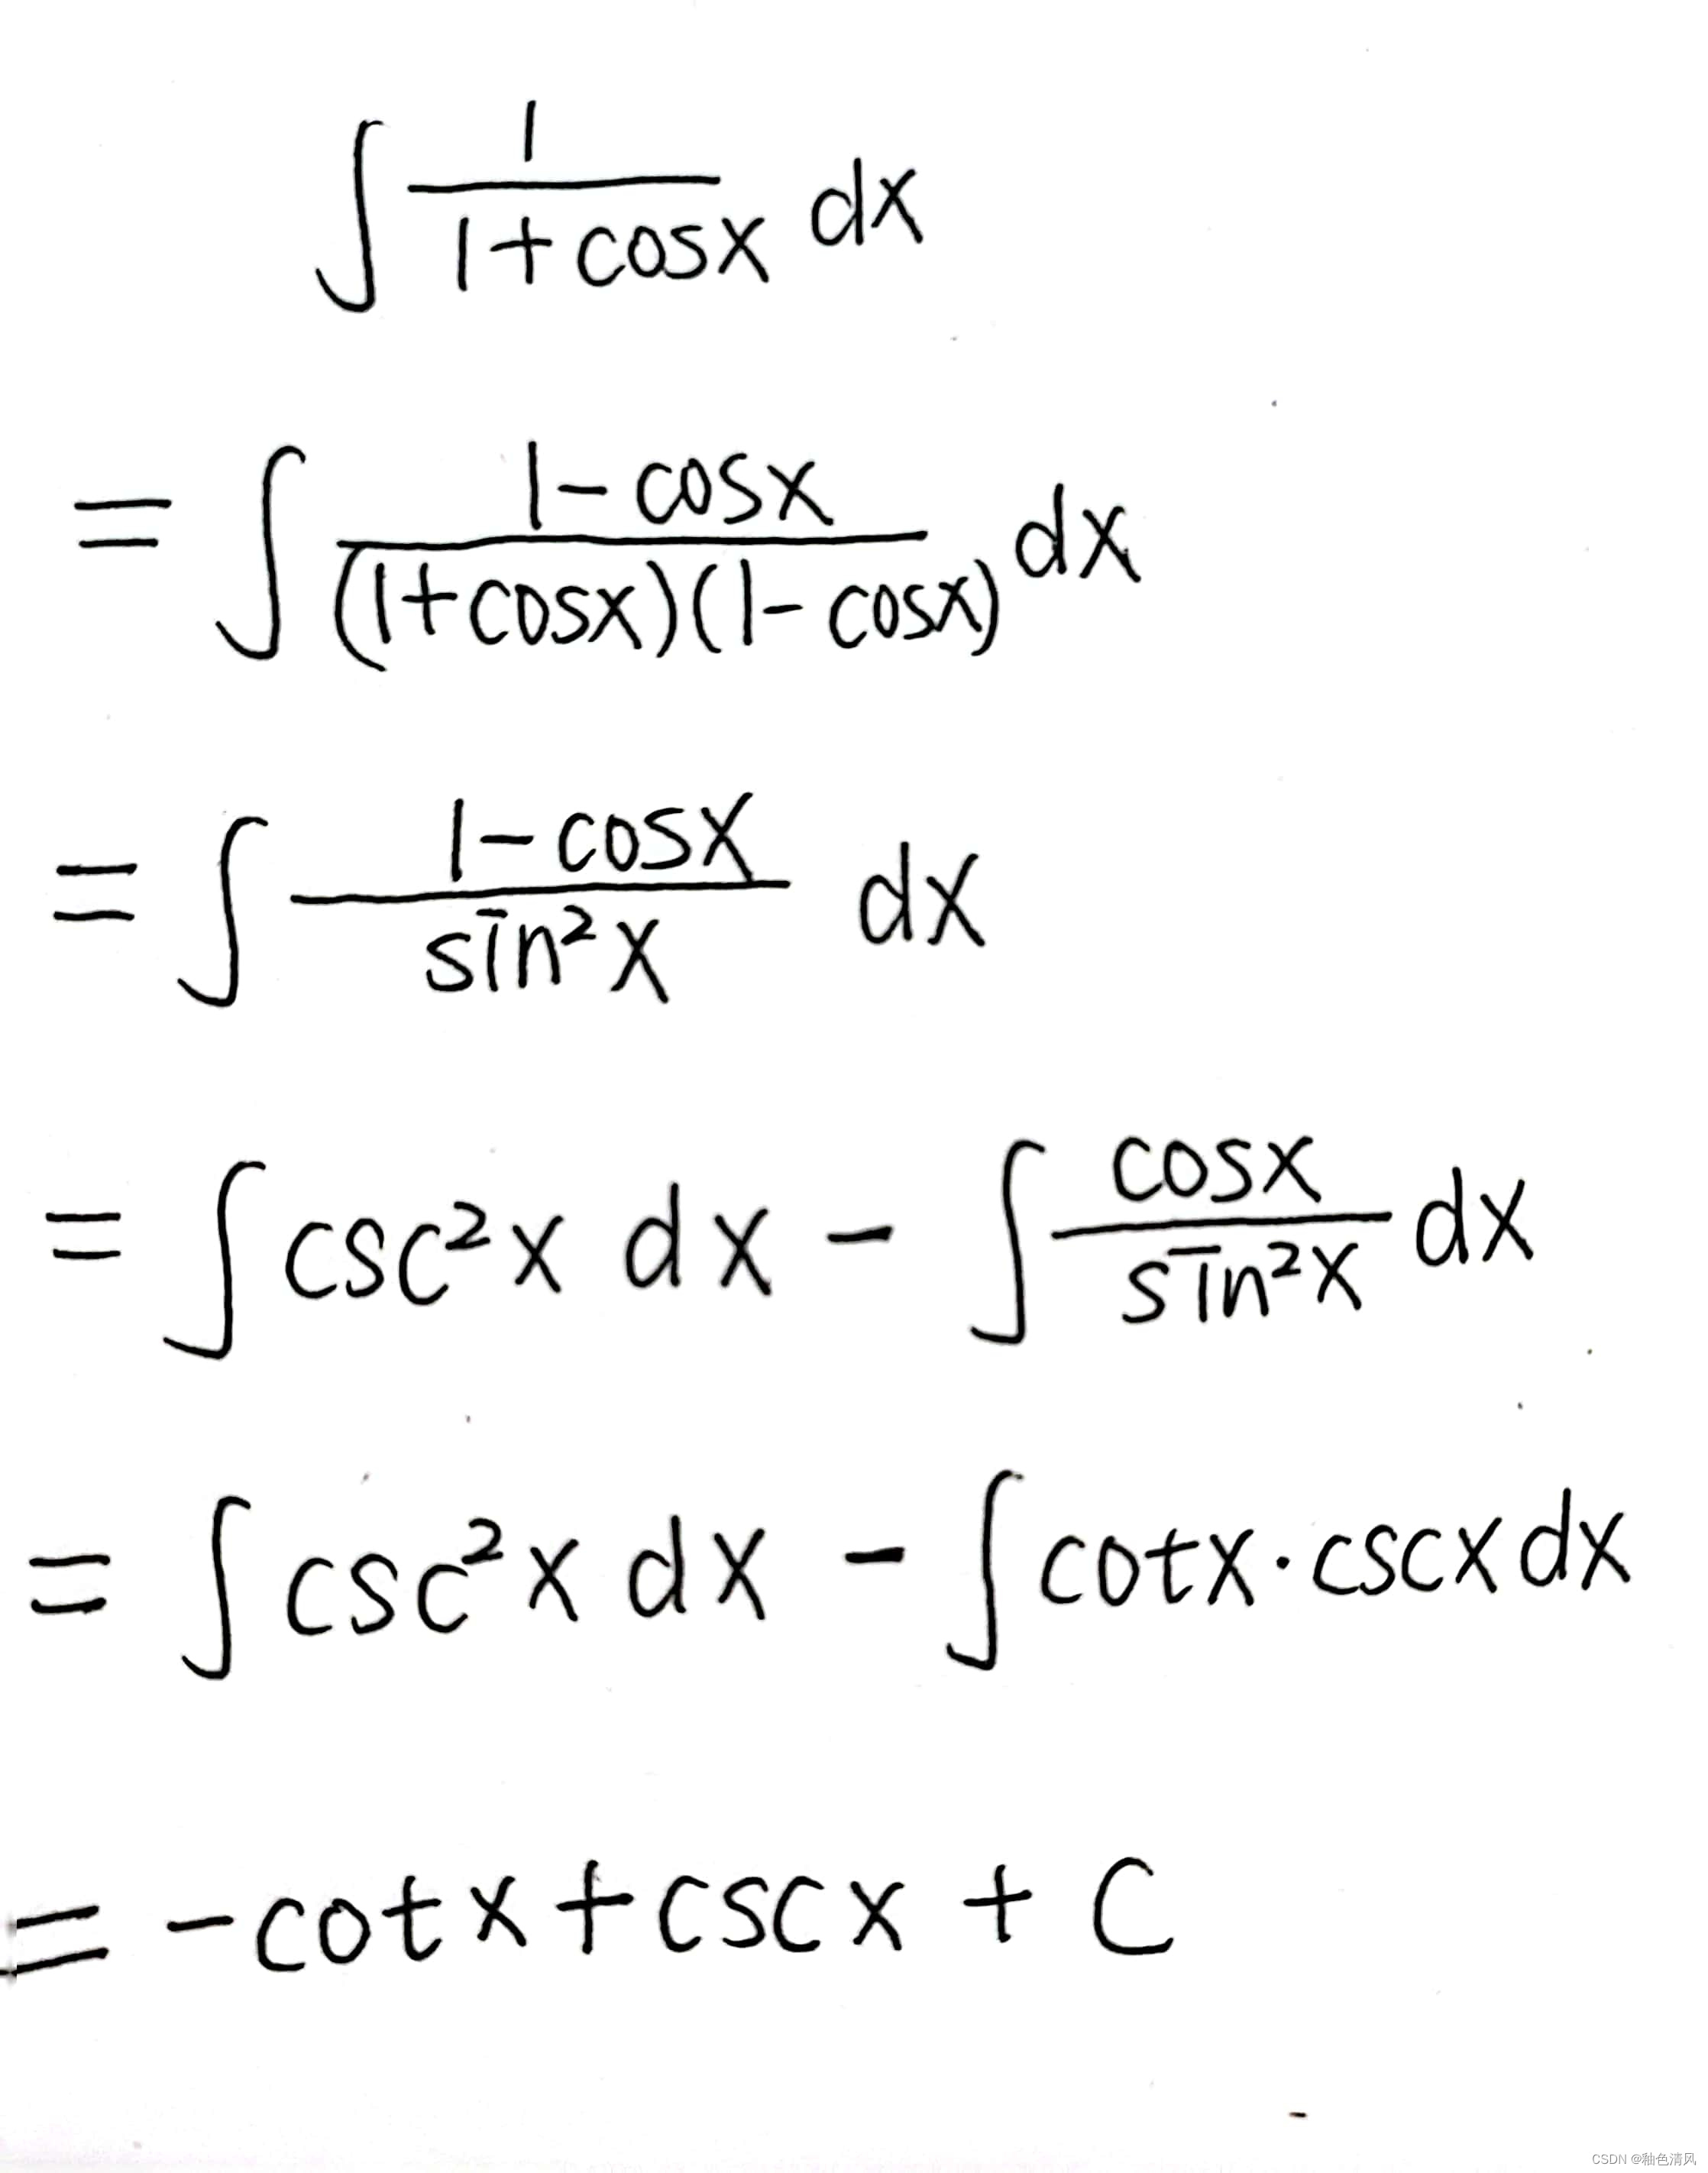 ∫ 1/(1+cosx) dx
= ∫ (1-cosx)/((1+cosx)(1-cosx)) dx
= ∫ (1-cosx)/(sin²x) dx
= ∫ csc²x dx - ∫ cosx/sin²x dx
= ∫ csc²x dx - ∫ cotx·cscx dx
= -cotx + cscx + C
CSDN @釉色清风